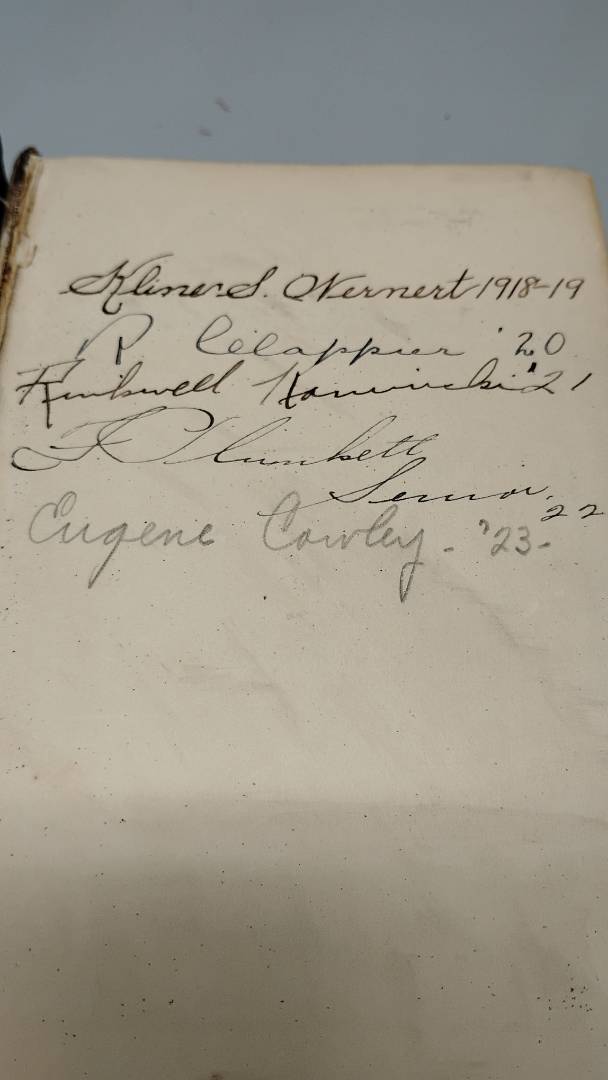 Kliner S. Wernert 1918-19
R Clappier '20
Kaminski '21
F Plunkett
Senior. 22
Eugene Cowley - '23-